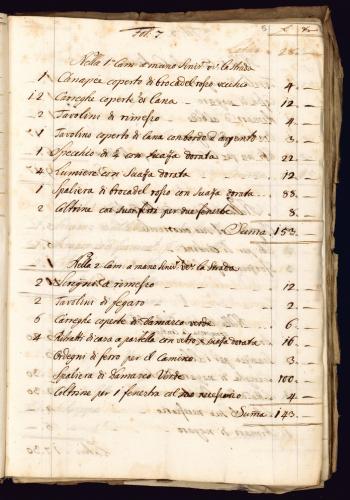 Fol. 7
28 –
Nella 1ª Cam. a mano sinis. vs. la strada
1 Canapèe coperto di brocadel rosso vecchio 4. –
12 Carreghe coperte di lana 12 –
2 Tavolini di rimesso 4. –
1 Tavolino coperto di lana con bordo d'argento 3. –
1 Specchio di 4 con suaza dorata 22. –
4 Lumiere con suaza dorata 12 –
1 Spaliera di brocadel rosso con suaza dorata 88. –
2 Coltrine con per due fenestre 8. –
Suma 153. –
Nella 2 Cam. a mano sinis. vs. la Strada
2 a rimesso 12 –
2 Tavolini di 2 –
6 Carreghe coperte di Damasco verde 6 –
4 Ritratti di casa a pastella con vetro, e suaza dorata 16. –
Ordegni di ferro per il Camino 3. –
Spaliera di Damasco Verde 100. –
Coltrine per 1 fenestra col suo necessario 4 –
Suma 143. –